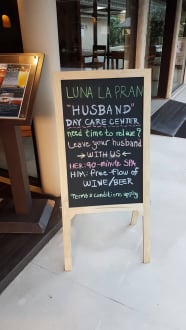 LUNA LA PRAN
"HUSBAND"
DAY CARE CENTER
need time to relax?
Leave your husband
→ WITH US ←
HER: 90-minute SPA
HIM: free-flow of
WINE/BEER
Terms & conditions apply